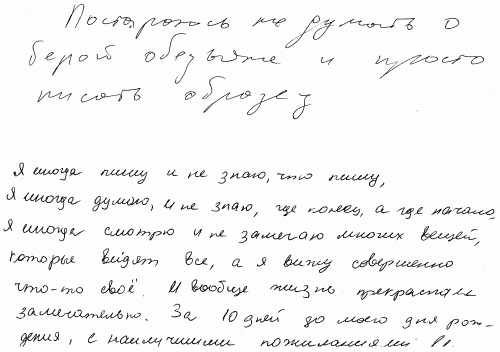 Постараюсь не думать о
белой обезьяне и просто
писать образец
Я иногда пишу и не знаю, что пишу,
Я иногда думаю, и не знаю, где конец, а где начало,
Я иногда смотрю и не замечаю многих вещей,
которые видят все, а я вижу совершенно
что-то своё. И вообще жизнь прекрасна и
замечательно. За 10 дней до моего дня рож-
дения, с наилучшими пожеланиями